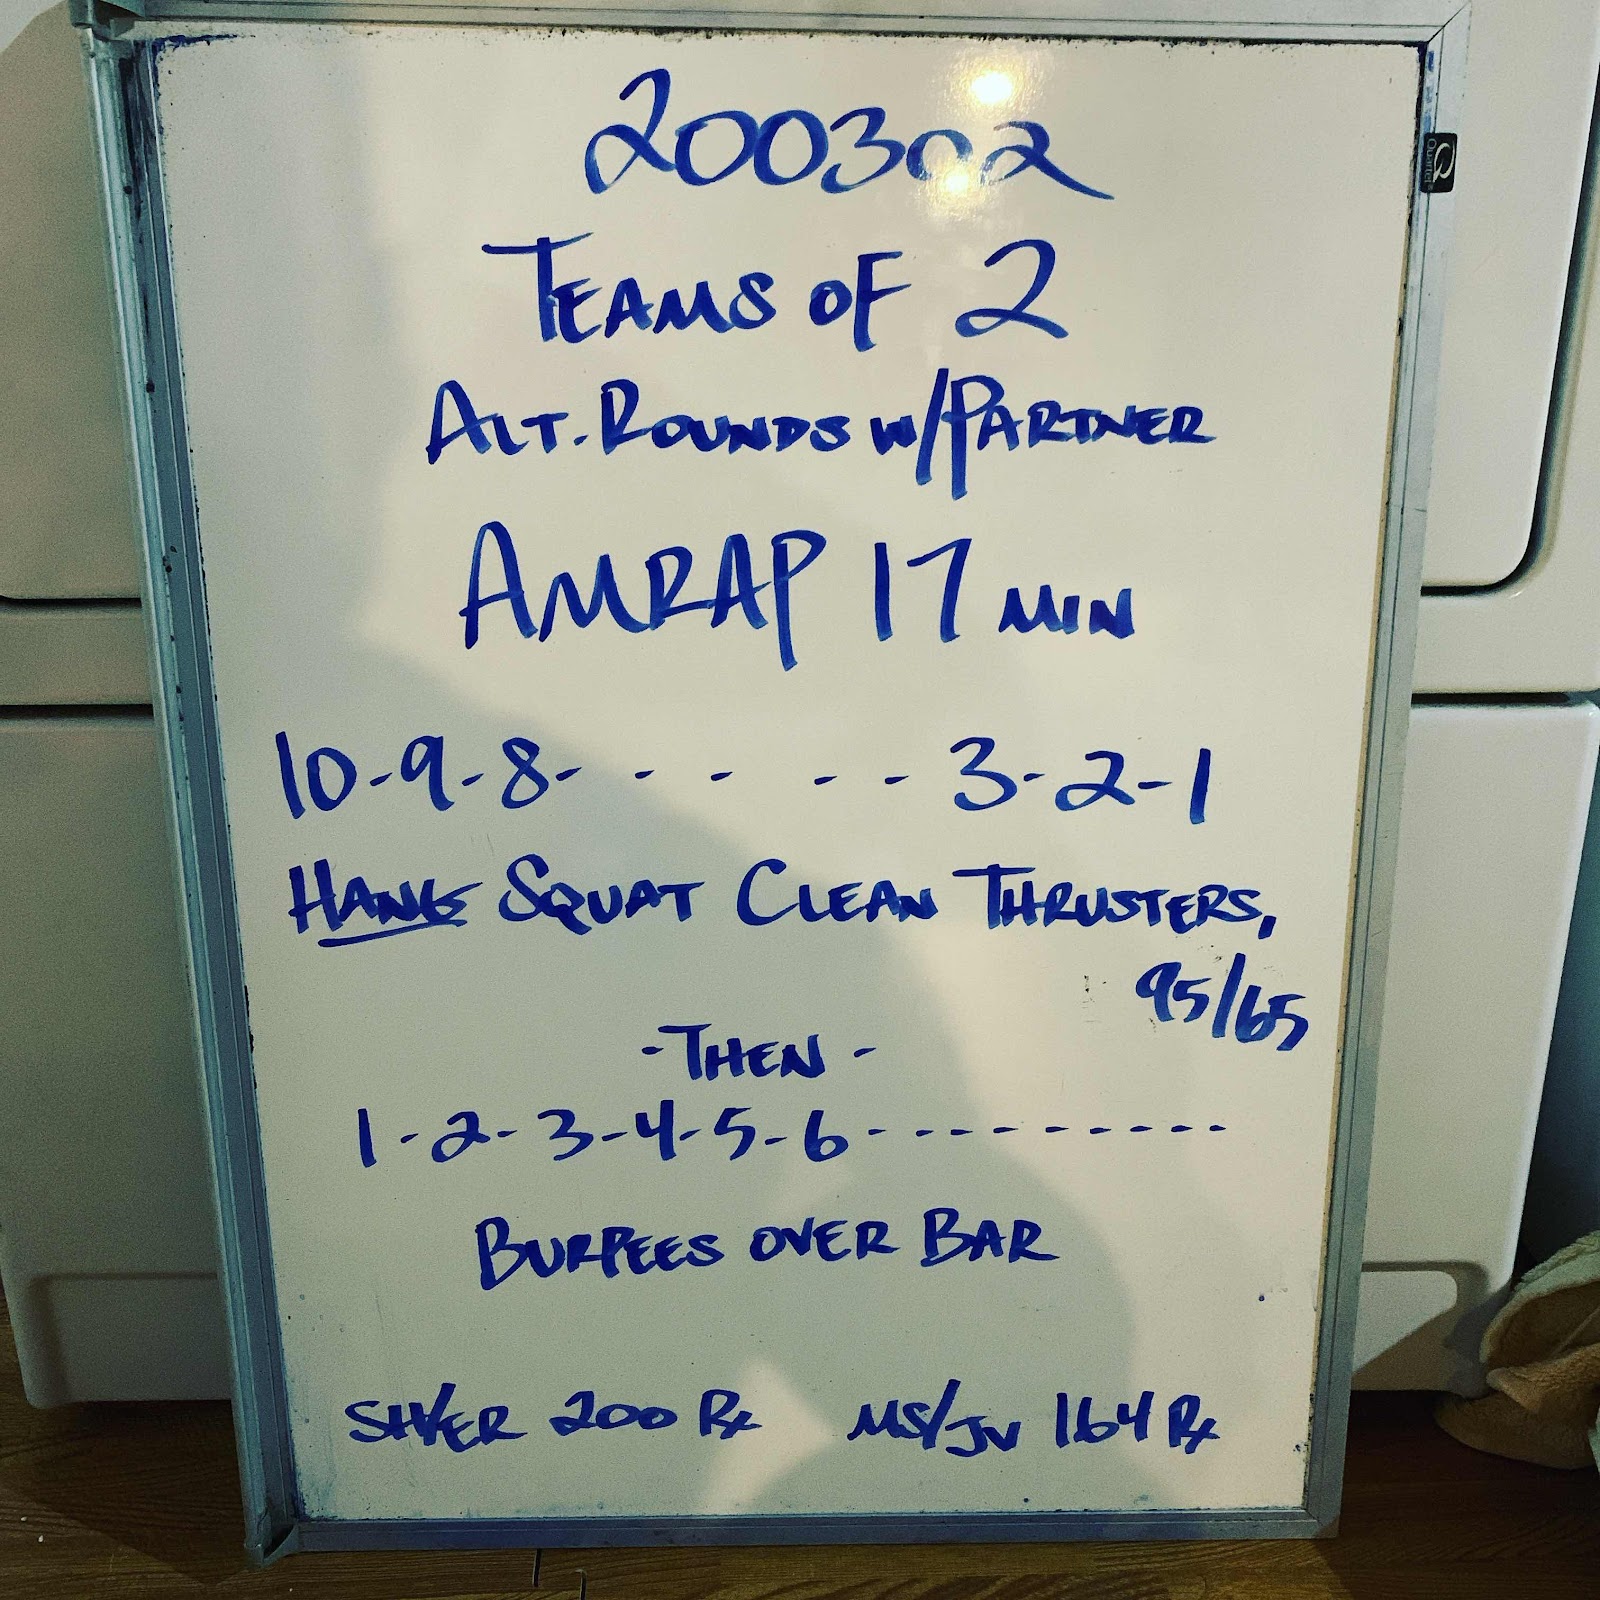 200302
TEAMS OF 2
ALT. ROUNDS W/PARTNER
AMRAP 17 MIN
10-9-8- - - - - 3-2-1
HANG SQUAT CLEAN THRUSTERS,
95/65
-THEN-
1-2-3-4-5-6- - - - - - - - -
BURPEES OVER BAR
SH/ER 200 Rx MS/JV 164 Rx
Q
Quartet